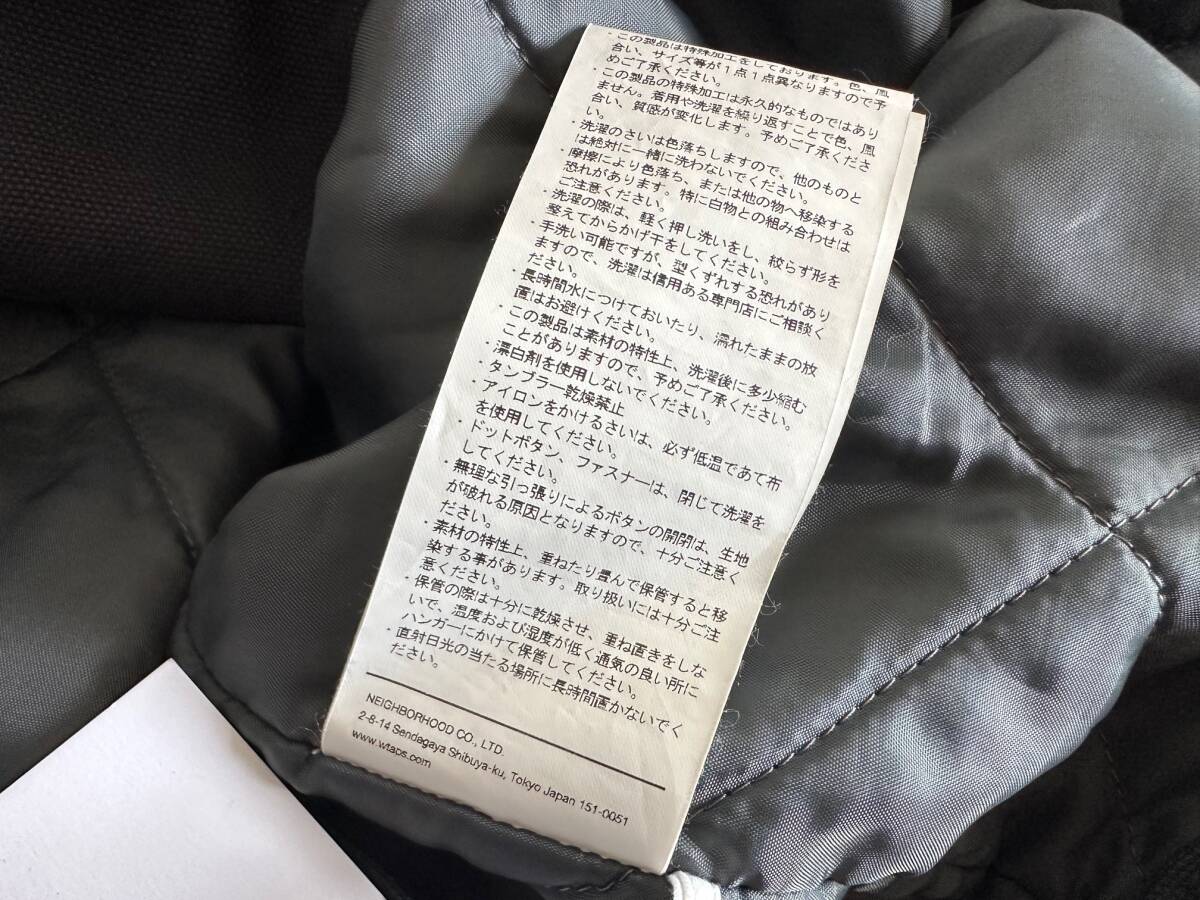 ・この製品は特殊加工をしております。色、風
合い、サイズ等が1点1点異なりますので予
めご了承ください。
この製品の特殊加工は永久的なものではあり
ません。着用や洗濯を繰り返すことで色、風
合い、質感が変化します。予めご了承くださ
い。
・洗濯のさいは色落ちしますので、他のものと
は絶対に一緒に洗わないでください。
・摩擦により色落ち、または他の物へ移染する
恐れがあります。特に白物との組み合わせは
ご注意ください。
・洗濯の際は、軽く押し洗いをし、絞らず形を
整えてからかげ干をしてください。
・手洗い可能ですが、型くずれする恐れがあり
ますので、洗濯は信用ある専門店にご相談く
ださい。
・長時間水につけておいたり、濡れたままの放
置はお避けください。
・この製品は素材の特性上、洗濯後に多少縮む
ことがありますので、予めご了承ください。
・漂白剤を使用しないでください。
・タンブラー乾燥禁止
・アイロンをかけるさいは、必ず低温であて布
を使用してください。
・ドットボタン、ファスナーは、閉じて洗濯を
してください。
・無理な引っ張りによるボタンの開閉は、生地
が破れる原因となりますので、十分ご注意く
ださい。
・素材の特性上、重ねたり畳んで保管すると移
染する事があります。取り扱いには十分ご注
意ください。
・保管の際は十分に乾燥させ、重ね置きをしな
いで、温度および湿度が低く通気の良い所に
ハンガーにかけて保管してください。
・直射日光の当たる場所に長時間置かないでく
ださい。
NEIGHBORHOOD CO., LTD.
2-8-14 Sendagaya Shibuya-ku, Tokyo Japan 151-0051
www.wtaps.com